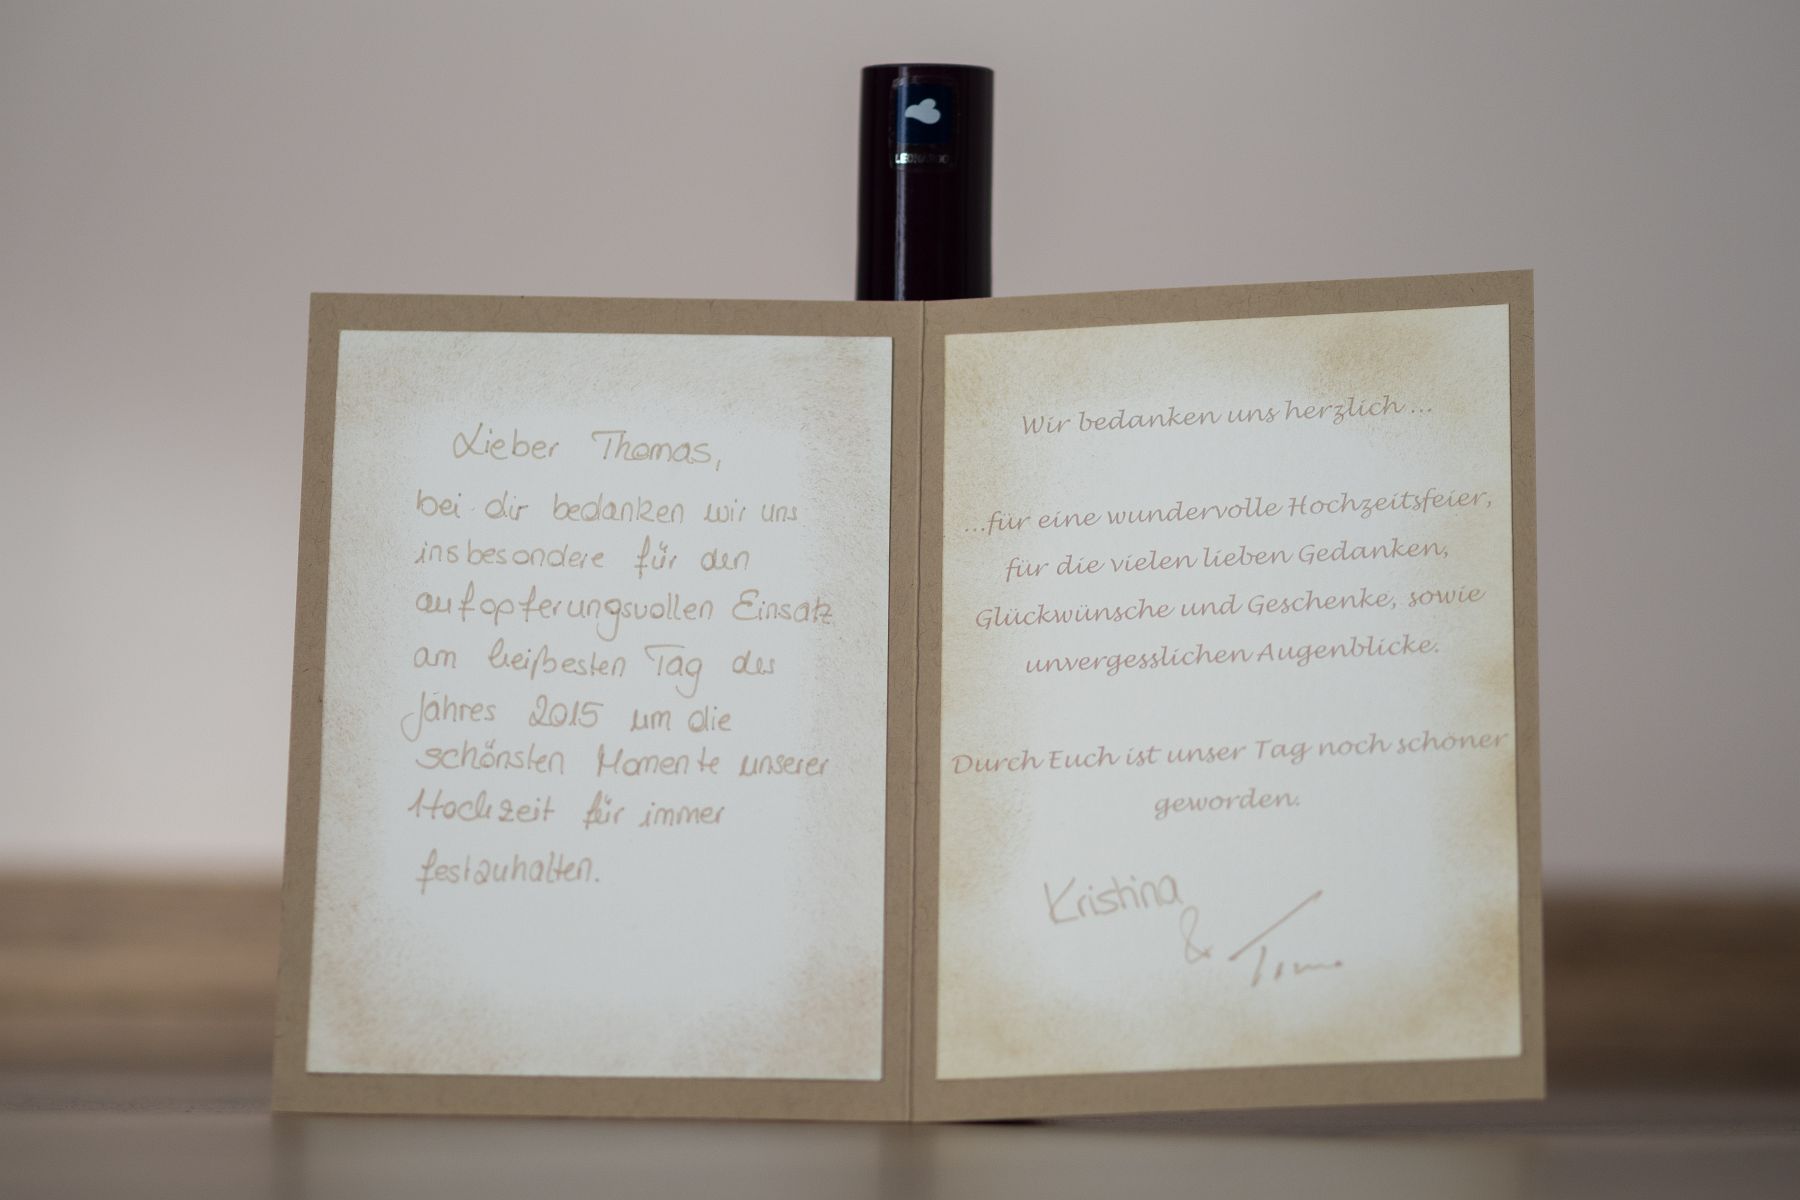 LEONARDO
Lieber Thomas,
bei dir bedanken wir uns
insbesondere für den
aufopferungsvollen Einsatz
am heißesten Tag des
Jahres 2015 um die
schönsten Momente unserer
Hochzeit für immer
festzuhalten.
Wir bedanken uns herzlich ...
...für eine wundervolle Hochzeitsfeier,
für die vielen lieben Gedanken,
Glückwünsche und Geschenke, sowie
unvergesslichen Augenblicke.
Durch Euch ist unser Tag noch schöner
geworden.
Kristina
&